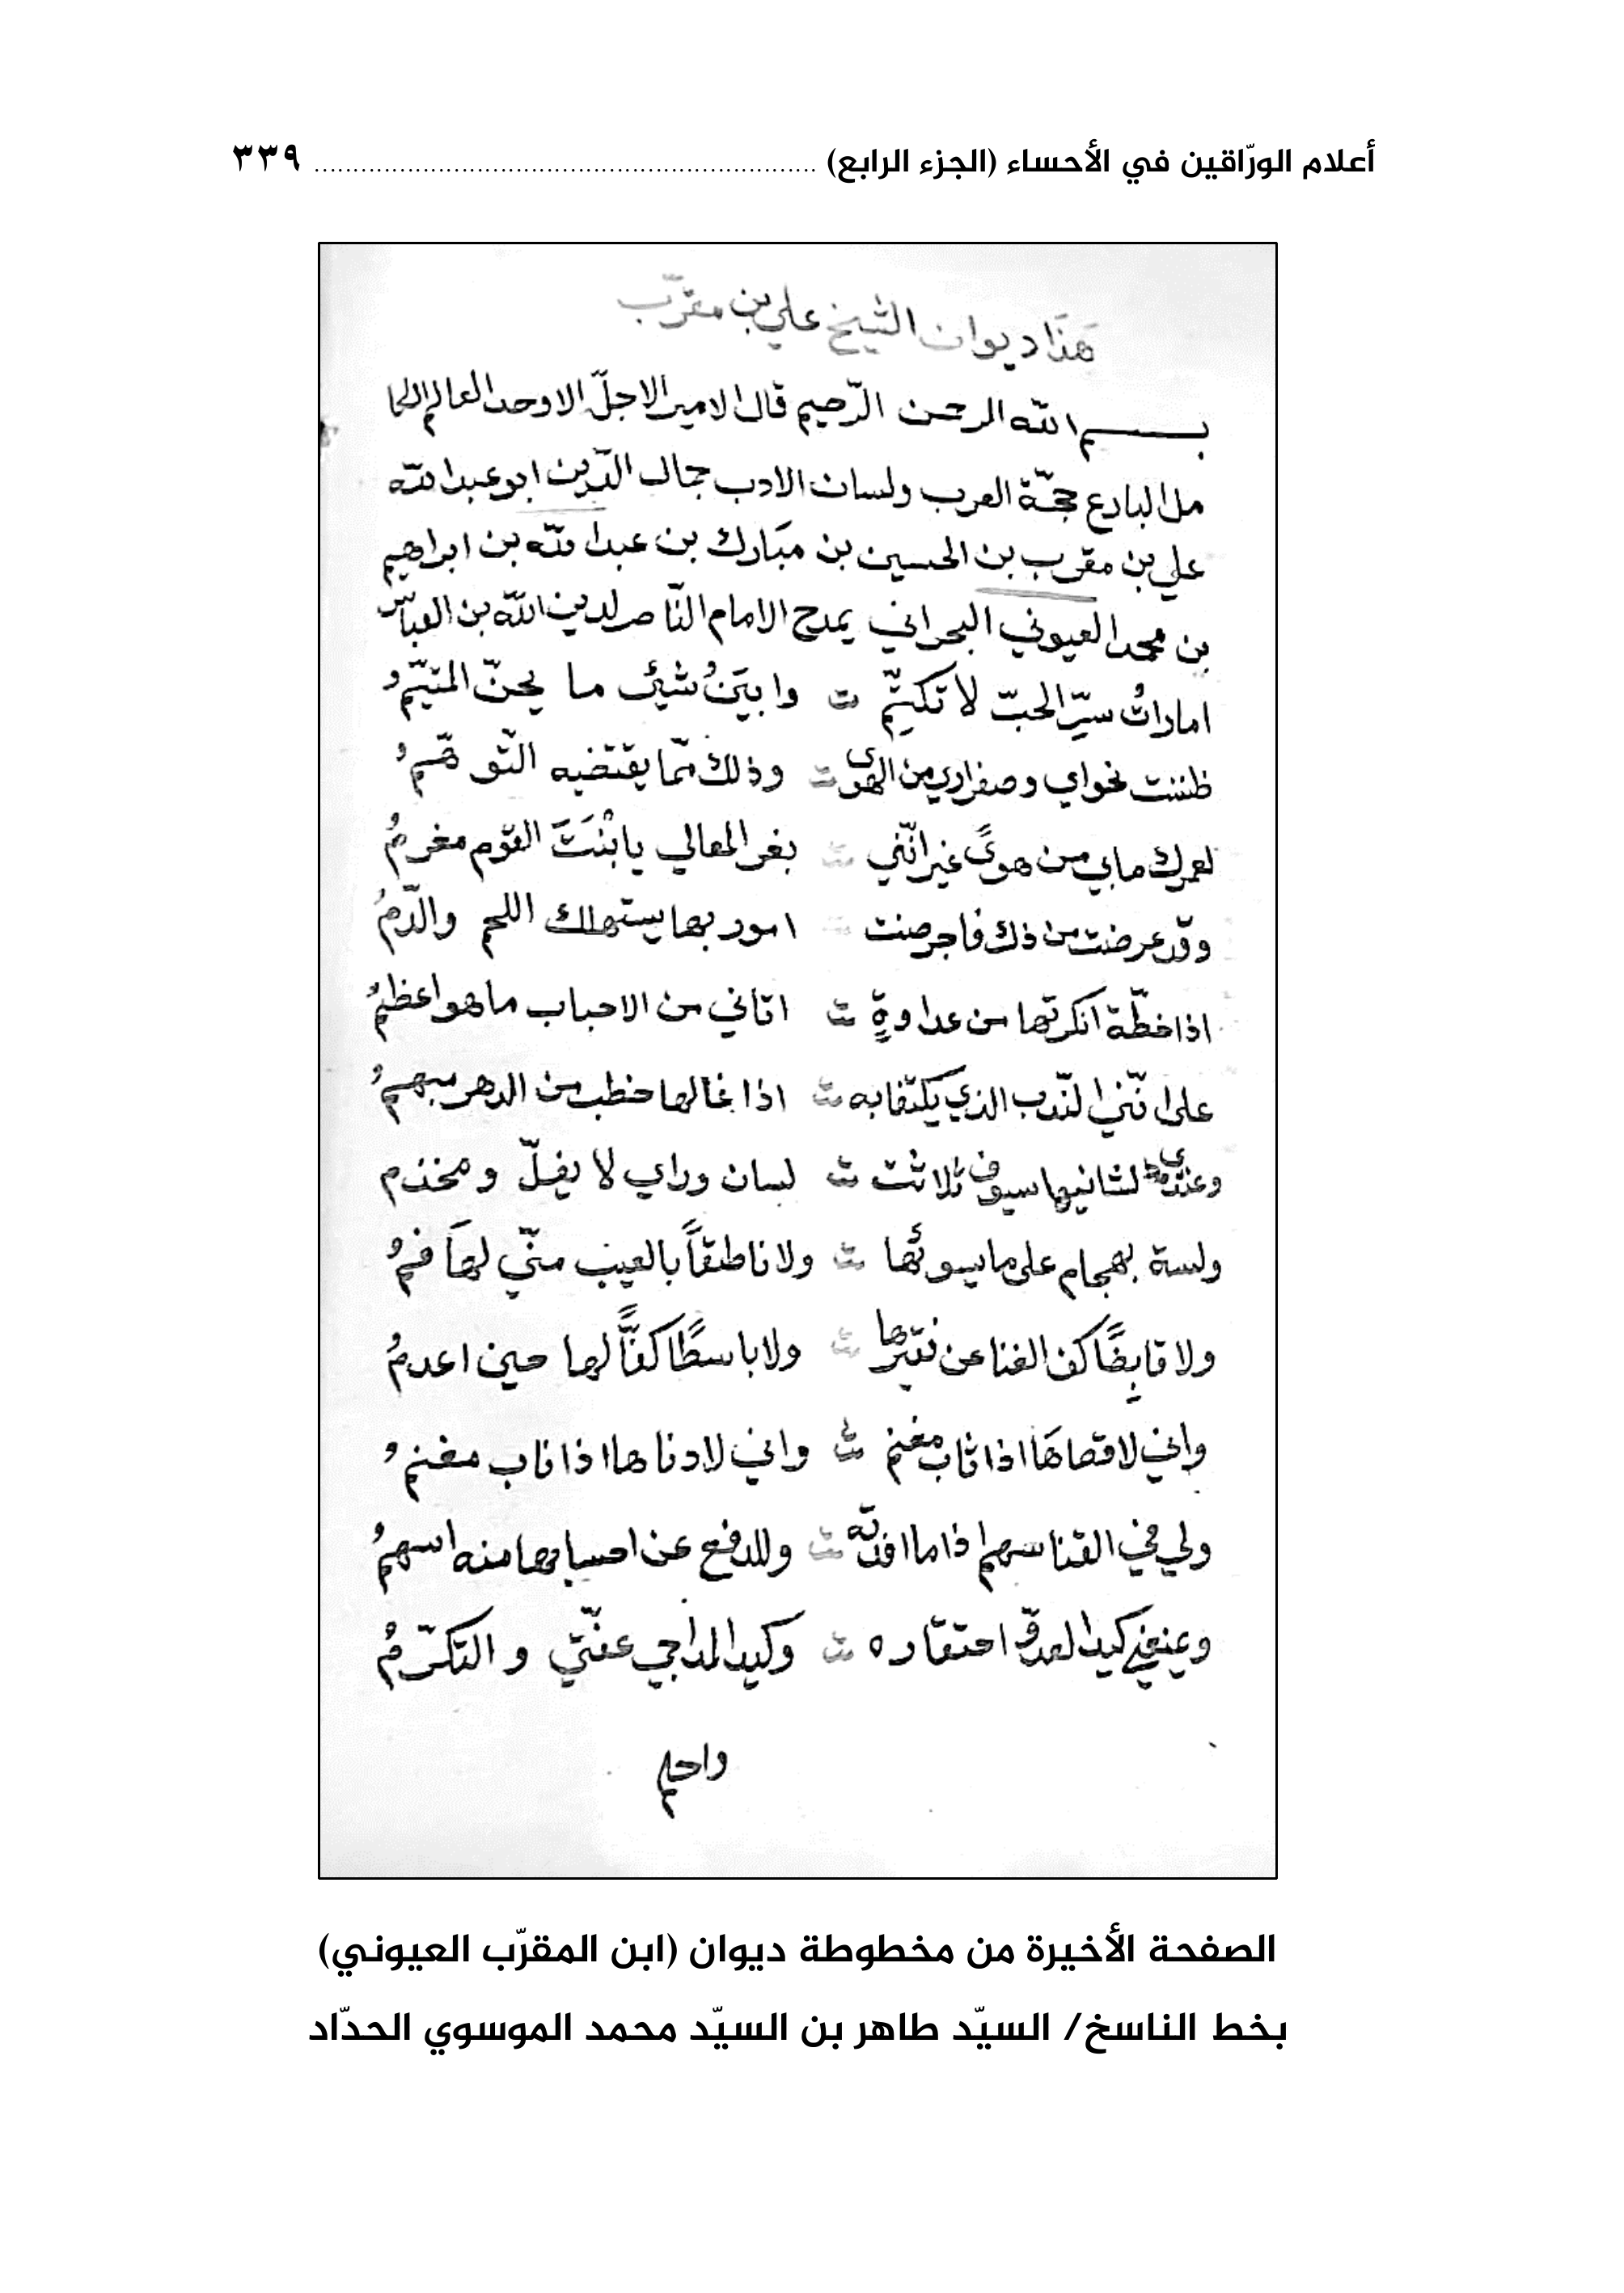 أعلام الورّاقين في الأحساء (الجزء الرابع) ................................................................ ٣٣٩
هَذَا ديوان الشيخ علي بن مقرّب
بسم الله الرحمن الرّحيم قال الامير الاجلّ الاوحد العالم الكا
مل البارع حجّة العرب ولسان الادب جمال الدّين ابو عبد الله
علي بن مقرب بن الحسين بن مبَارك بن عبد الله بن ابراهيم
بن محمد العيوني البحراني يمدح الامام النّاصر لدين الله بن العبّاس
امارات سرّ الحبّ لا تكتّم وابيَنُ شيئ ما يجنّ المتيّمُ
ظننت نحولي وصفراري من الهوى وذلك ممّا يقتضيه التّوهّمُ
لعمرك مابي من هوىً غير انّني بغر المعالي يا بْنَتَ القوم مغرمُ
وقد عرضت من ذك فاجرصنت امور بها يستهلك اللحم والدّمُ
اذا خطّة انكرتها من عداوةٍ اتاني من الاحباب ما هو اعظمُ
على انّني النّدب الذي يكتفا به اذا غالها خطب من الدهر مبهمُ
وعندي لشانيها سيوف ثلاثت لسان وراي لا يفلّ ومخذم
ولسة بهجام على ما يسوئها ولا ناطقاً بالعيب منّي لهَا فمُ
ولا قابِضًا كف الغنا عن فقيرها ولا باسطًا كفًّا لها حين اعدمُ
واني لاقصاهَا اذا ناب مغنم واني لادناها اذا ناب مغنمُ
ولي في القنا سهم اذا ما افدته وللدفع عن احسابها منه اسهمُ
ويمنعني كيد العدوّ احتقاره وكيد المداجي عفّتي والتكرّمُ
واحلم
الصفحة الأخيرة من مخطوطة ديوان (ابن المقرّب العيوني)
بخط الناسخ/ السيّد طاهر بن السيّد محمد الموسوي الحدّاد